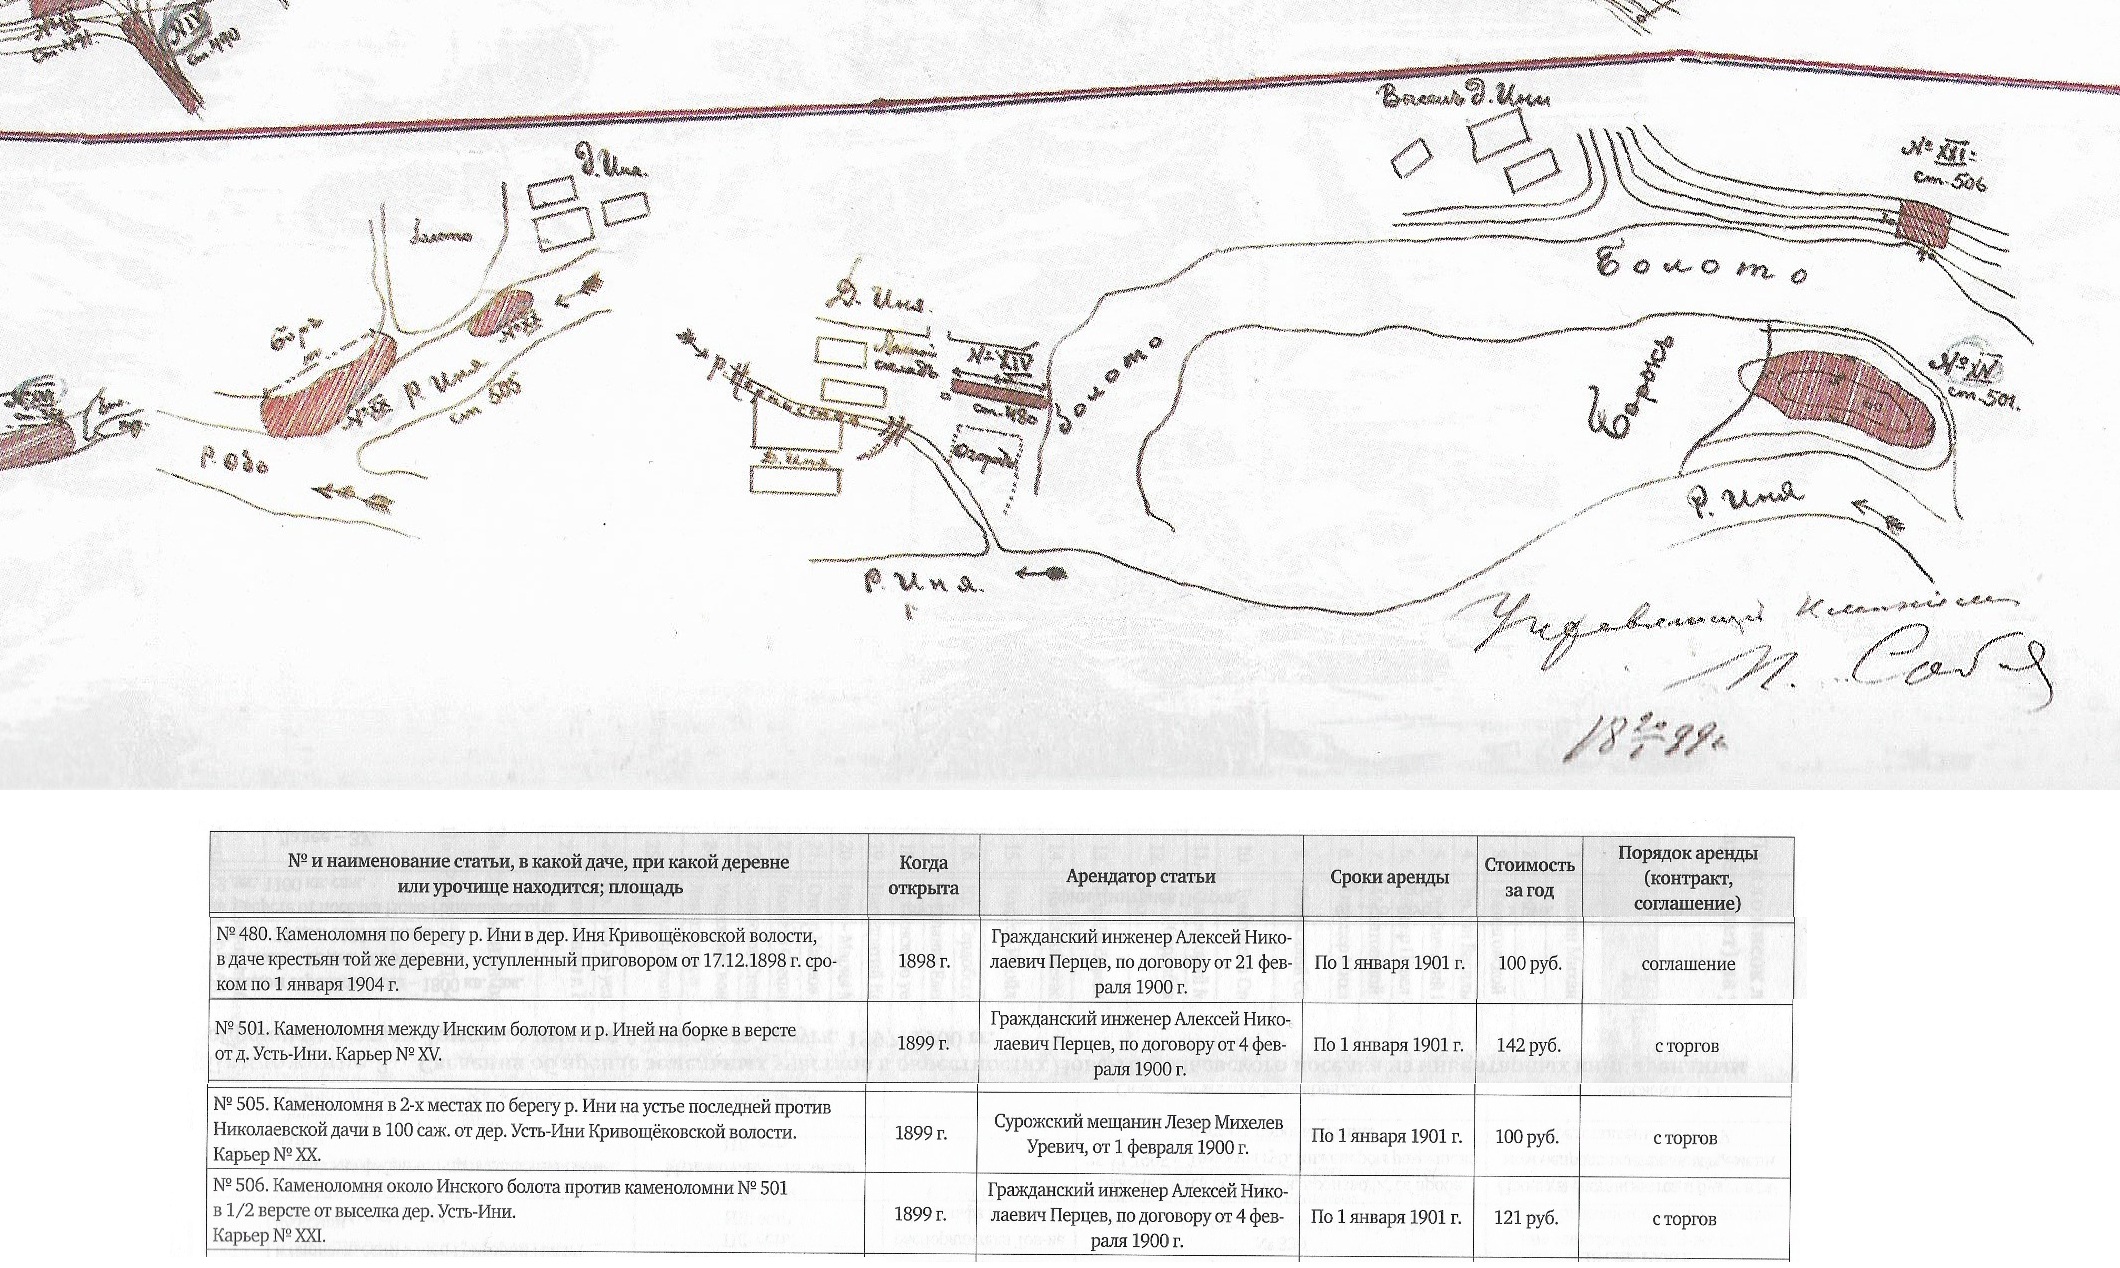 ст. 491.
ст. 490
Выселъ д. Ини
№ XXI
ст. 506
д. Иня.
болото
Болото
Д. Иня.
№ XX
р. Иня
ст 505
№ XX
р. Обь
№ XIV
ст. 480
Болото
Огородъ
д. Иня
Борокъ
№ XV
ст. 501.
р. Иня
р. Иня.
Управляющій имѣніемъ
18 99 г.
№ и наименование статьи, в какой даче, при какой деревне
или урочище находится; площадь
Когда
открыта
Арендатор статьи
Сроки аренды
Стоимость
за год
Порядок аренды
(контракт,
соглашение)
№ 480. Каменоломня по берегу р. Ини в дер. Иня Кривощёковской волости,
в даче крестьян той же деревни, уступленный приговором от 17.12.1898 г. сро-
ком по 1 января 1904 г.
1898 г.
Гражданский инженер Алексей Нико-
лаевич Перцев, по договору от 21 фев-
раля 1900 г.
По 1 января 1901 г.
100 руб.
соглашение
№ 501. Каменоломня между Инским болотом и р. Иней на борке в версте
от д. Усть-Ини. Карьер № XV.
1899 г.
Гражданский инженер Алексей Нико-
лаевич Перцев, по договору от 4 фев-
раля 1900 г.
По 1 января 1901 г.
142 руб.
с торгов
№ 505. Каменоломня в 2-х местах по берегу р. Ини на устье последней против
Николаевской дачи в 100 саж. от дер. Усть-Ини Кривощёковской волости.
Карьер № XX.
1899 г.
Сурожский мещанин Лезер Михелев
Уревич, от 1 февраля 1900 г.
По 1 января 1901 г.
100 руб.
с торгов
№ 506. Каменоломня около Инского болота против каменоломни № 501
в 1/2 версте от выселка дер. Усть-Ини.
Карьер № XXI.
1899 г.
Гражданский инженер Алексей Нико-
лаевич Перцев, по договору от 4 фев-
раля 1900 г.
По 1 января 1901 г.
121 руб.
с торгов